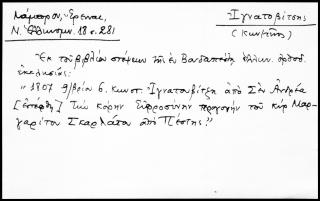 Λάμπρου, Ἔρευναι,
Ν. Ἑλληνομν. 18 σ. 281
Ἰγνατοβίτσης
(Κων/τῖνος)
Ἐκ τοῦ βιβλίου στάψεων τῆς ἐν Βουδαπέστῃ ἑλλην. ὀρθοδ.
ἐκκλησίας:
"1807 9/βρίου 6. κωνστ. Ἰγνατοβίτζη ἀπὸ Σὲν Ἀνδρέα
[ἐστάφθη] τὴν κόρην Εὐφροσύνην προγονὴν τοῦ κὺρ Μαρ-
γαρίτου Σκαρλάτου ἀπὸ Πέστης."